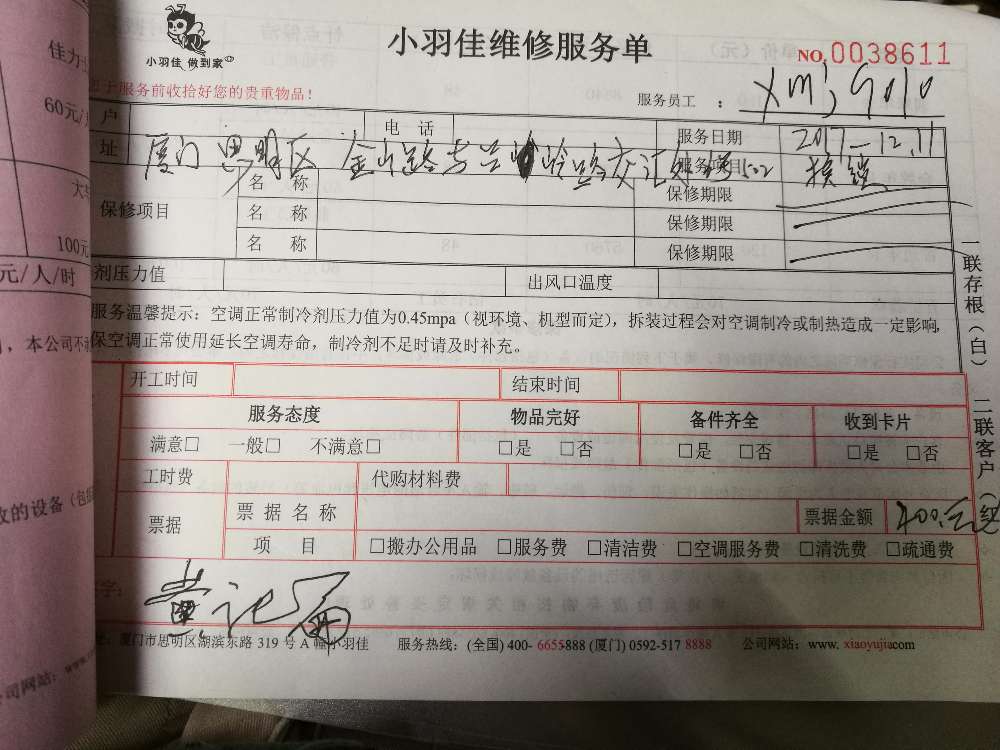 小羽佳 做到家
小羽佳维修服务单
NO. 0038611
于服务前收拾好您的贵重物品！
服务员工：
户 电 话 服务日期 2017.12.11
址 厦门思明区 服务项目 换锁
保修项目 名 称 保修期限
名 称 保修期限
名 称 保修期限
剂压力值 出风口温度
服务温馨提示：空调正常制冷剂压力值为0.45mpa（视环境、机型而定），拆装过程会对空调制冷或制热造成一定影响，
保空调正常使用延长空调寿命，制冷剂不足时请及时补充。
开工时间 结束时间
服务态度 物品完好 备件齐全 收到卡片
满意□ 一般□ 不满意□ □是 □否 □是 □否 □是 □否
工时费 代购材料费
票据 票 据 名 称 票据金额 400元
项 目 □搬办公用品 □服务费 □清洁费 □空调服务费 □清洗费 □疏通费
字：
厦门市思明区湖滨东路 319 号 A 幢小羽佳 服务热线：(全国) 400- 6655-888 (厦门) 0592-517 8888 公司网站：www. xiaoyujia.com
一联存根（白） 二联客户（红
佳力
60元/
大
100元
元/人/时
，本公司不
改的设备（包
公司网站：www.